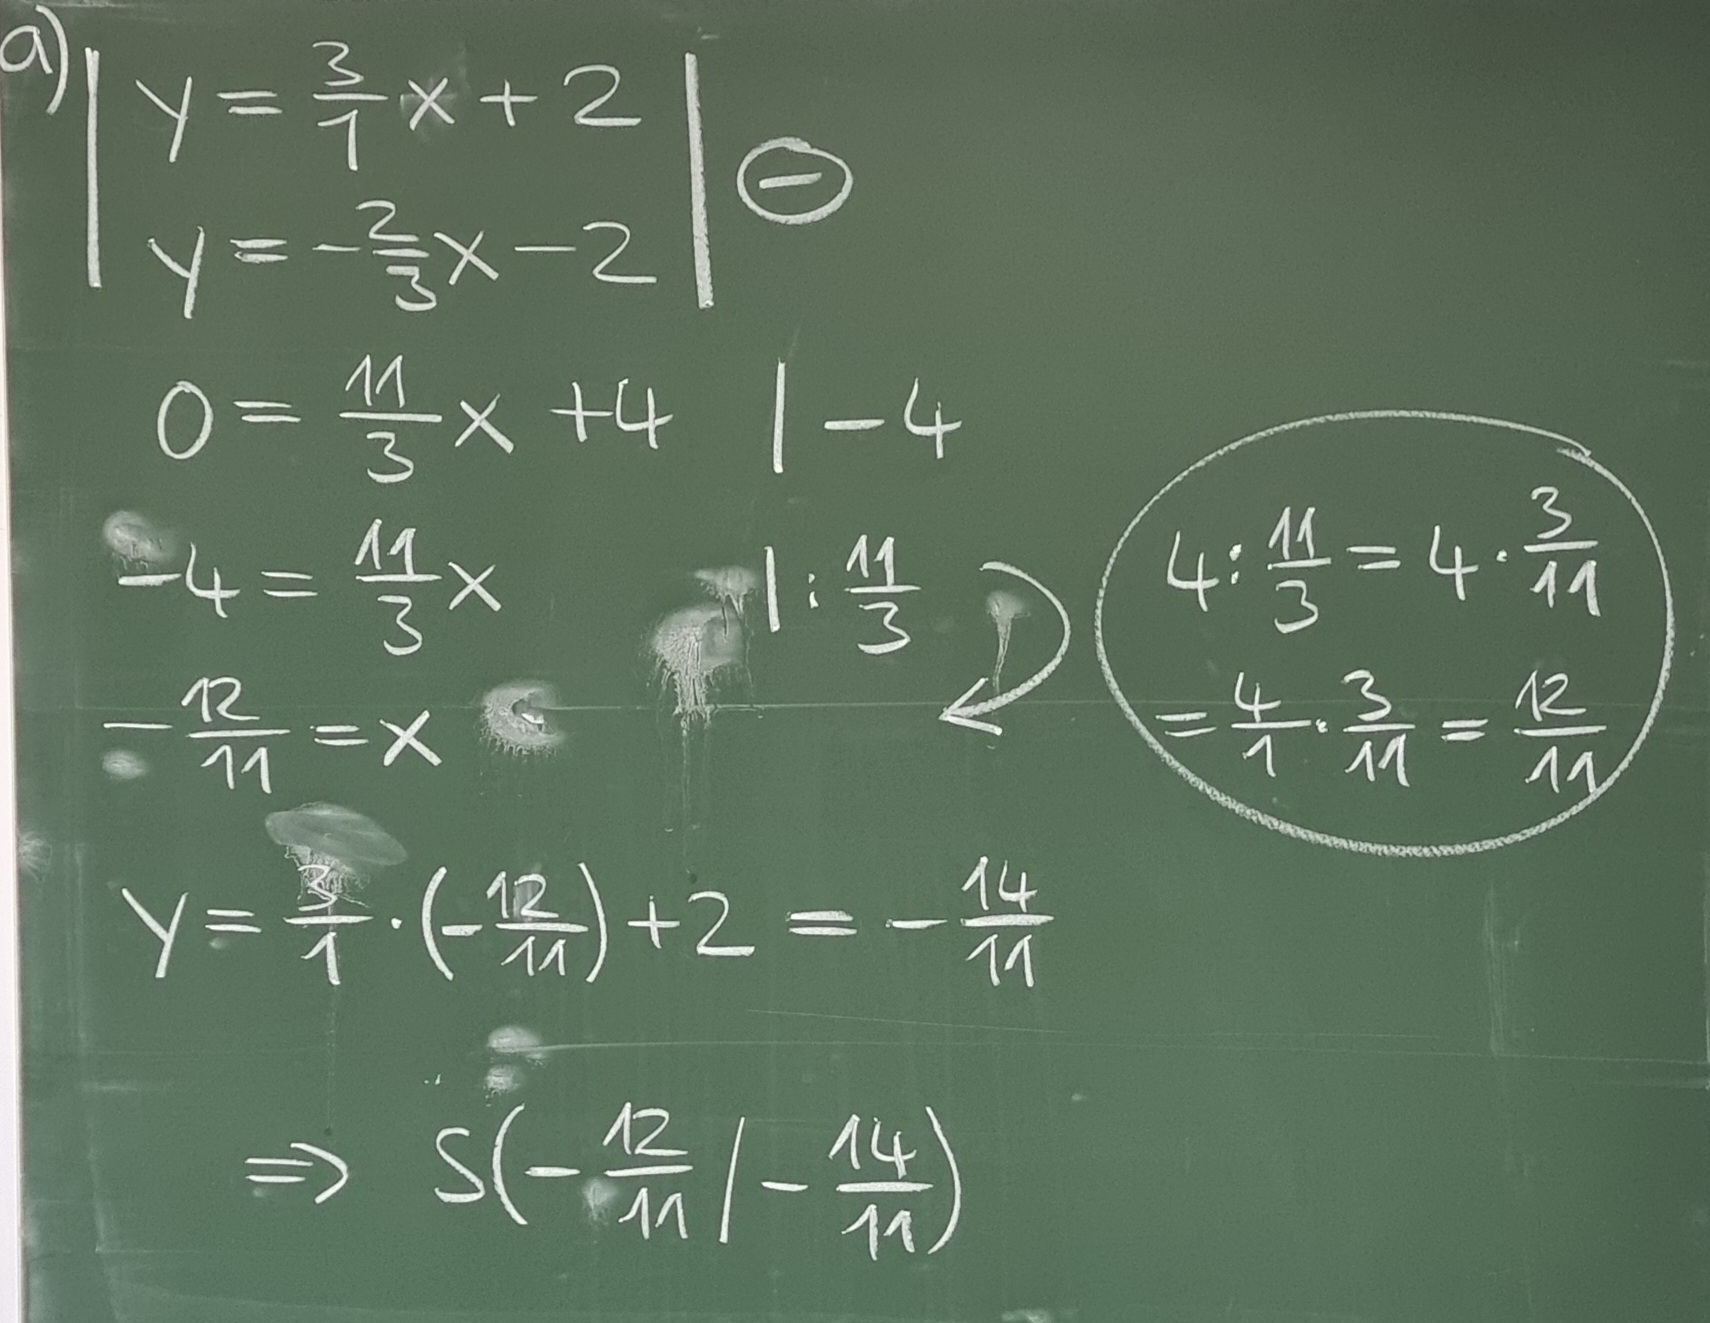 a) | y = 3/1 x + 2 |
| y = - 2/3 x - 2 | ⊖
0 = 11/3 x + 4 | - 4
-4 = 11/3 x | : 11/3
- 12/11 = x
4 : 11/3 = 4 · 3/11
= 4/1 · 3/11 = 12/11
y = 3/1 · (- 12/11) + 2 = - 14/11
⇒ S(- 12/11 / - 14/11)